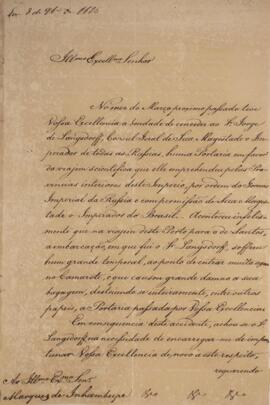 Em 3 de 9bro de 1825
Illmo. Excellmo. Senhor
No mez de Março proximo passado teve
Vossa Excellencia a bondade de conceder ao Sr. Jorge
de Langsdorff, Consul Geral de Sua Magestade o Im-
perador de todas as Russias, huma Portaria em favor
da viajem scientifica que elle emprehendia pelas Pro-
vincias interiores deste Imperio, por ordem do Governo
Imperial da Russia e com permissão de Sua Mages-
tade o Imperador do Brasil. Aconteceu infeliz-
mente que na viajem deste Porto para o de Santos,
a embarcação, em que fui o Sr. Langsdorff, soffreu
hum grande temporal, ao ponto de entrar muita agoa
no Camarote, o que causou grande damno a sua
bagagem, destruindo inteiramente, entre outros
papeis, a Portaria passada por Vossa Excellencia.
Em consequencia deste accidente, achou-se o Sr.
Langsdorff na necessidade de encarregar-me de impor-
tunar Vossa Excellencia de novo a este respeito,
requerendo
Ao Illmo. Exmo. Senr.
Marquez de Inhambupe